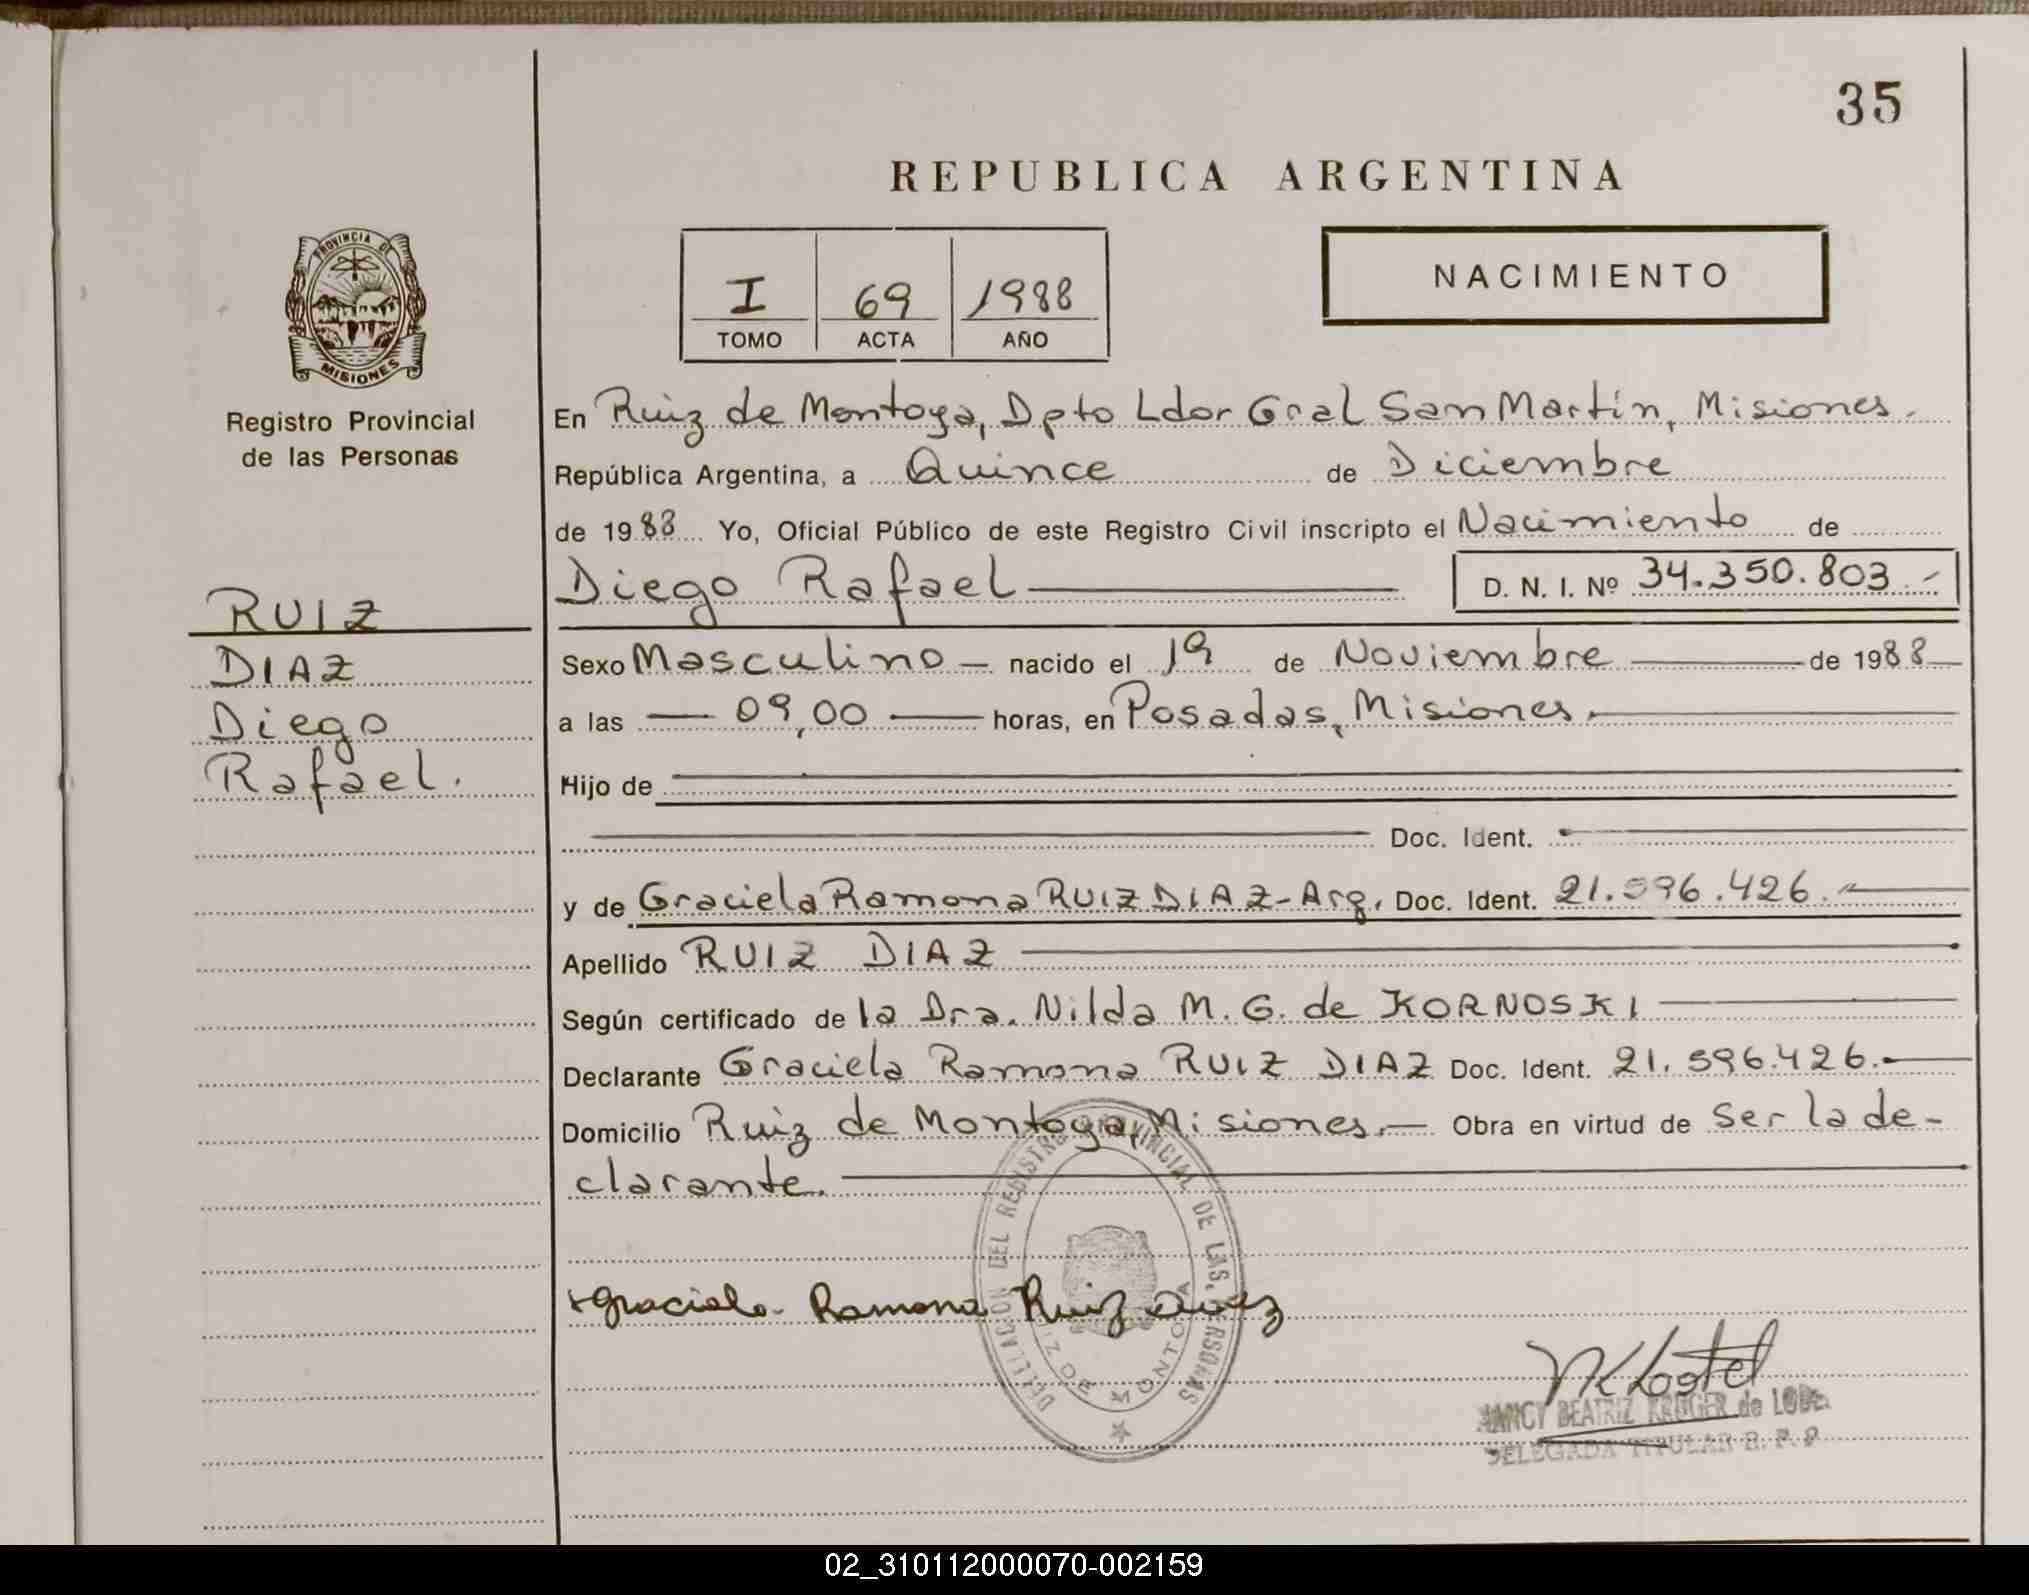 35
REPUBLICA ARGENTINA
PROVINCIA DE
MISIONES
Registro Provincial
de las Personas
I 69 1988
TOMO ACTA AÑO
NACIMIENTO
En Ruiz de Montoya, Dpto Ldor Gral San Martín, Misiones.
República Argentina, a Quince de Diciembre
de 1988 Yo, Oficial Público de este Registro Civil inscripto el Nacimiento de
Diego Rafael D. N. I. Nº 34.350.803.-
RUIZ
DIAZ
Diego
Rafael.
Sexo Masculino - nacido el 19 de Noviembre de 1988
a las 09,00 horas, en Posadas, Misiones.
Hijo de
Doc. Ident.
y de Graciela Ramona RUIZ DIAZ - Arg. Doc. Ident. 21.596.426.-
Apellido RUIZ DIAZ
Según certificado de la Dra. Nilda M. G. de KORNOSKI
Declarante Graciela Ramona RUIZ DIAZ Doc. Ident. 21.596.426.-
Domicilio Ruiz de Montoya, Misiones.- Obra en virtud de Ser la de-
clarante.
Graciela Ramona Ruiz
DEL REGISTRO PROVINCIAL DE LAS PERSONAS
DE MONTOYA
NANCY BEATRIZ KRUGER de
DELEGADA TITULAR R. P. P.
02_310112000070-002159